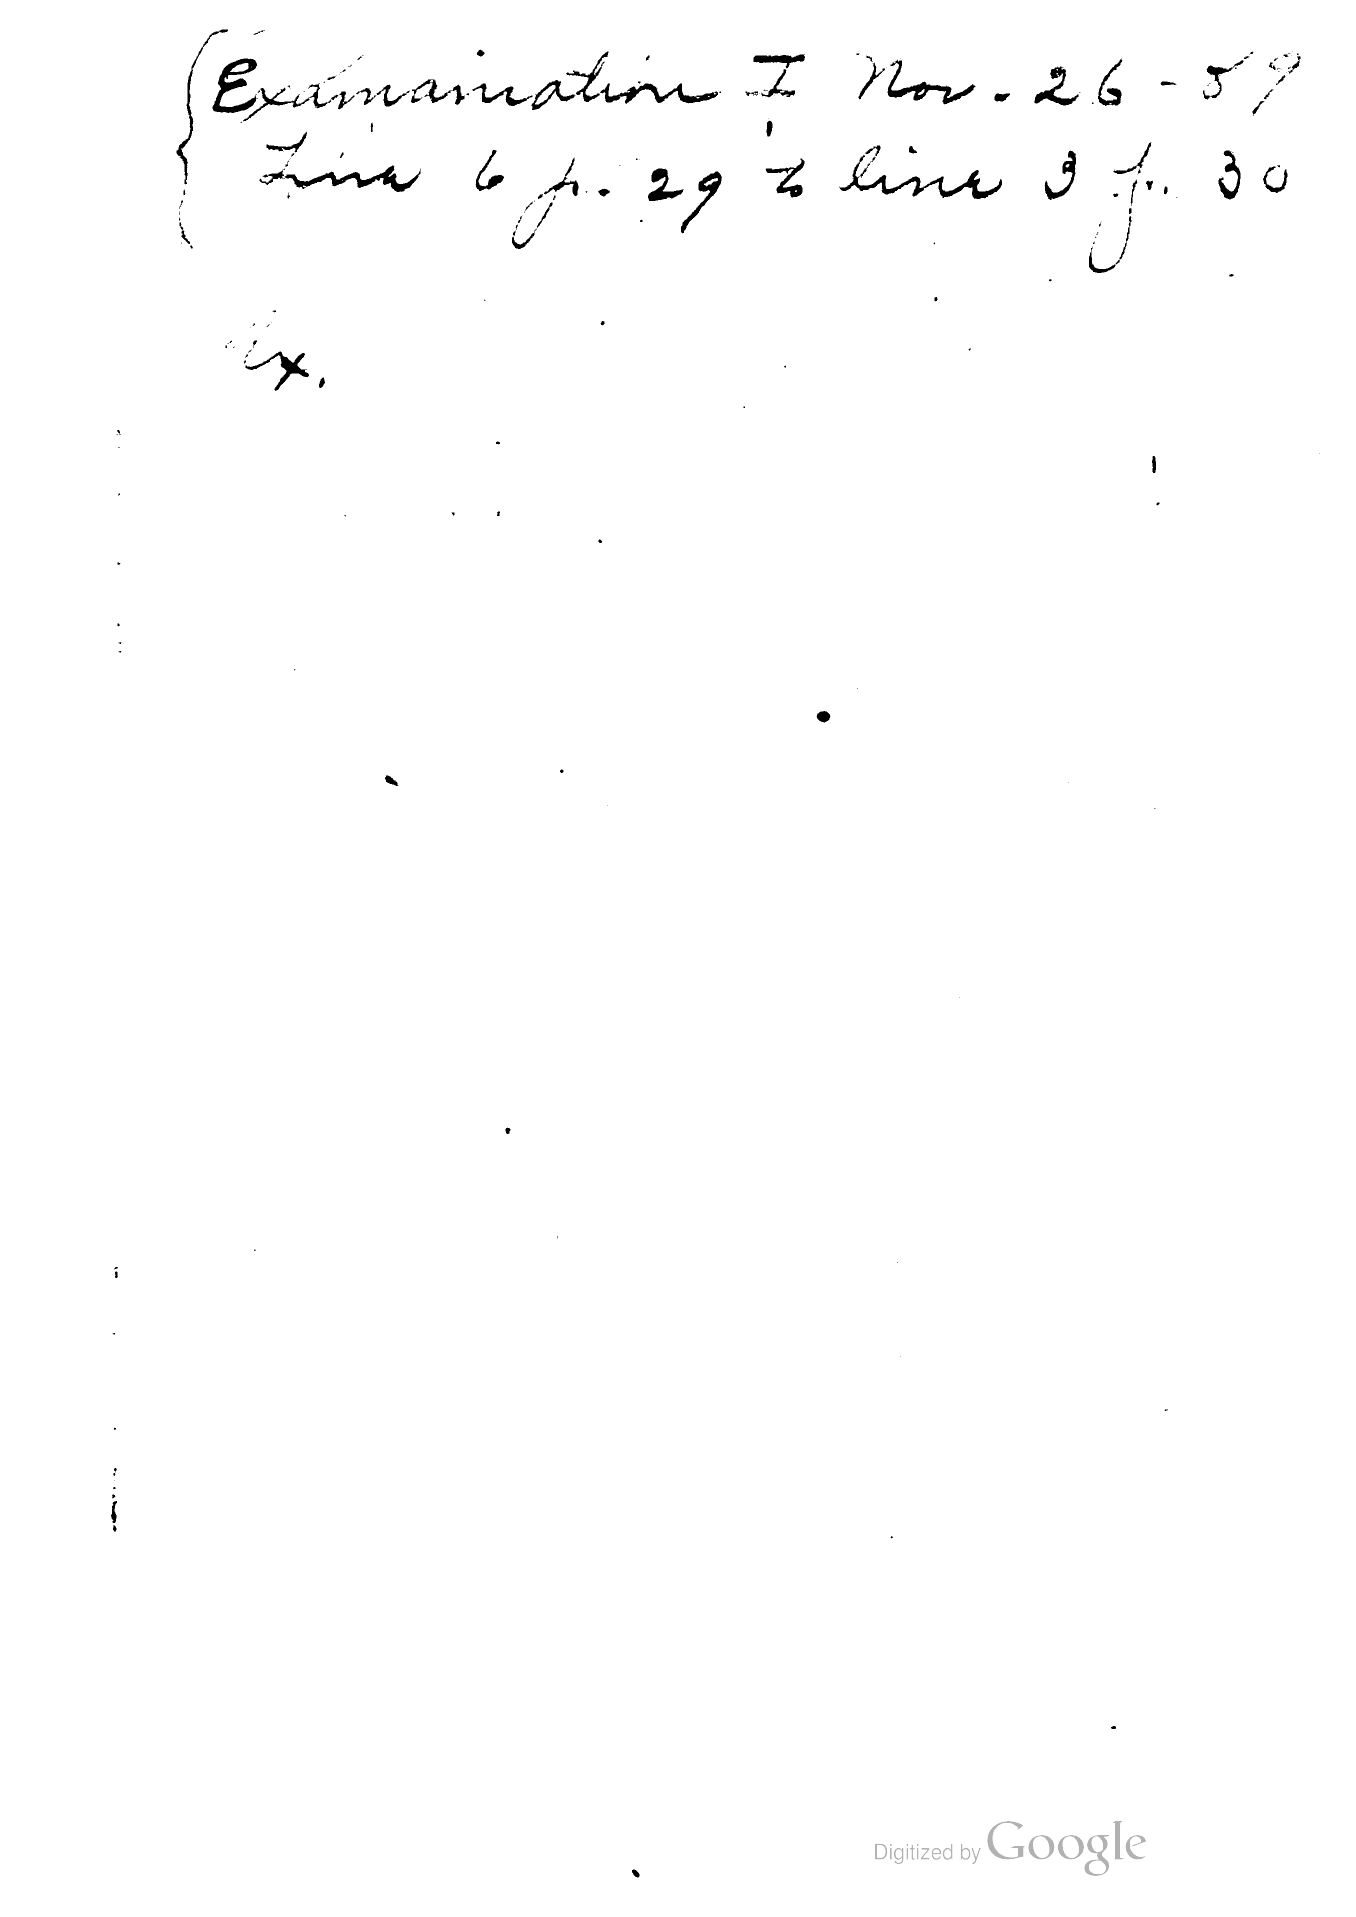 Examanication I Nov. 26 - 89
Line 6 p. 29 to line 3 p. 30
Ex.
Digitized by Google